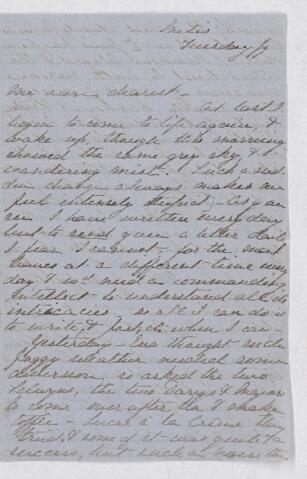 Metis
Tuesday
My own dearest -
At last I
begin to come to life again, &
wake up, though this morning
showed the same grey sky, &
wandering mist. Such a sud-
den change always makes me
feel intensely stupid -
I have written every day
but to send you a letter daily
I fear I cannot, for the mail
leaves at a different time every
day & wd. need a commanding
intellect to understand all its
intricacies - so all I can do is
to write, & post it when I can -
Yesterday - Eva thought such
foggy weather needed some
diversion so asked the two
the two Darys &
to come over after tea & make
toffee - Sucre à la Crème they
& some of it was quite a
success, but such a